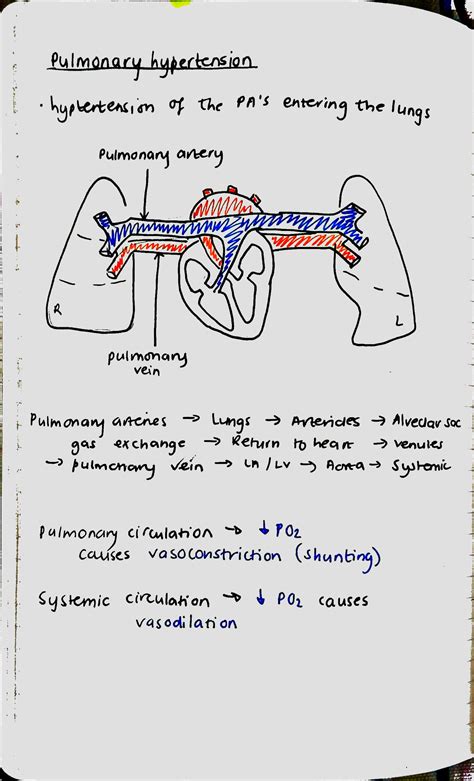 Pulmonary hypertension
· hyptertension of the PA's entering the lungs
Pulmonary artery
R
L
pulmonary
vein
Pulmonary arteries → Lungs → Arterioles → Alveolar sac
gas exchange → Return to heart → venules
→ pulmonary vein → LA/LV → Aorta → Systemic
Pulmonary circulation → ↓ PO₂
causes vasoconstriction (shunting)
Systemic circulation → ↓ PO₂ causes
vasodilation